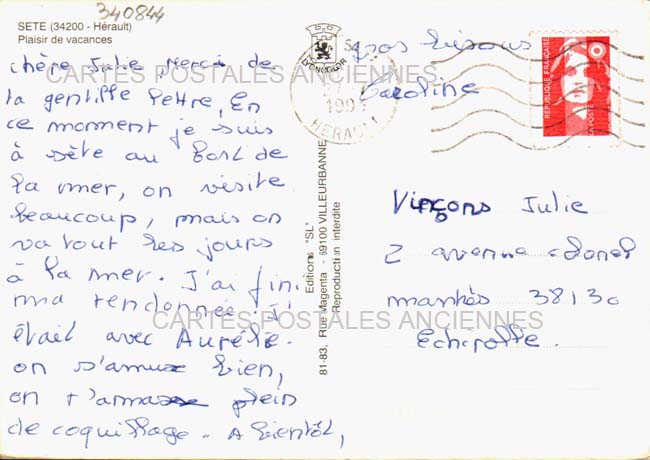 340844
SETE (34200 - Hérault)
Plaisir de vacances
chère Julie, Merci de
ta gentille lettre, En
ce moment je suis
à sète au bort de
la mer, on visite
beaucoup, mais on
va tout les jours
à la mer. J'ai fini
ma rendonnée J'
était avec Aurélie.
on s'amux bien,
on r'amasse plein
de coquillage. A bientôt,
gros bisous
Caroline
CARTES POSTALES ANCIENNES
CARTES POSTALES ANCIENNES
HERAULT
Editions "SL"
81-83, Rue Magenta - 69100 VILLEURBANNE
Reproduction interdite
REPUBLIQUE FRANÇAISE
LA POSTE
Vinçons Julie
2 avenue
38130
Echirolle.